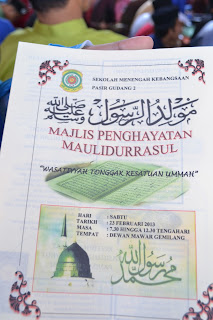 SEKOLAH MENENGAH KEBANGSAAN
PASIR GUDANG 2
مَوْلِدُ الرَّسُوْل
صلى الله عليه وسلم
MAJLIS PENGHAYATAN
MAULIDURRASUL
"WASATIYYAH TONGGAK KESATUAN UMMAH"
HARI : SABTU
TARIKH : 23 FEBRUARI 2013
MASA : 7.30 HINGGA 11.30 TENGAHARI
TEMPAT : DEWAN MAWAR GEMILANG
محمد رسول الله